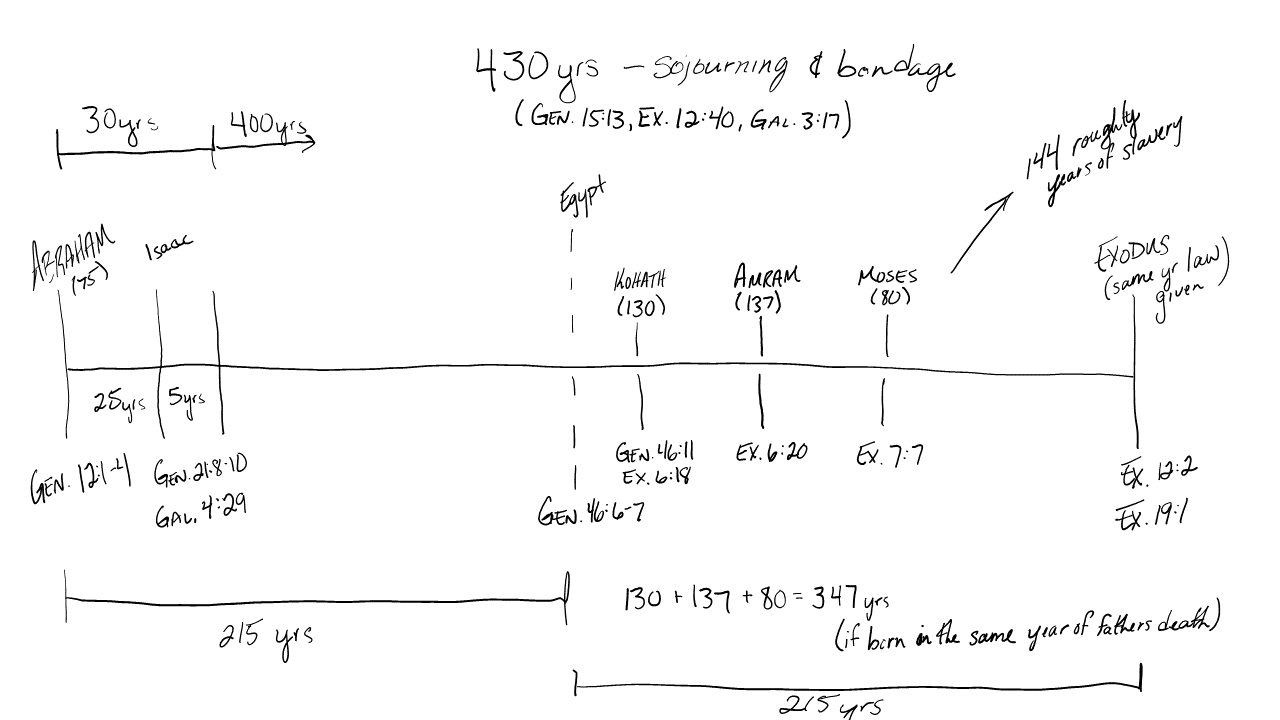 430 yrs – Sojourning & bondage
(GEN. 15:13, EX. 12:40, GAL. 3:17)
30 yrs
400 yrs
144 roughly
years of slavery
Egypt
ABRAHAM
(75)
Isaac
KOHATH
(130)
AMRAM
(137)
MOSES
(80)
EXODUS
(same yr law
given)
25 yrs
5 yrs
GEN. 12:1-4
GEN. 21:8-10
GAL. 4:29
GEN. 46:6-7
GEN. 46:11
EX. 6:18
EX. 6:20
EX. 7:7
EX. 12:2
EX. 19:1
215 yrs
130 + 137 + 80 = 347 yrs
(if born in the same year of fathers death)
215 yrs